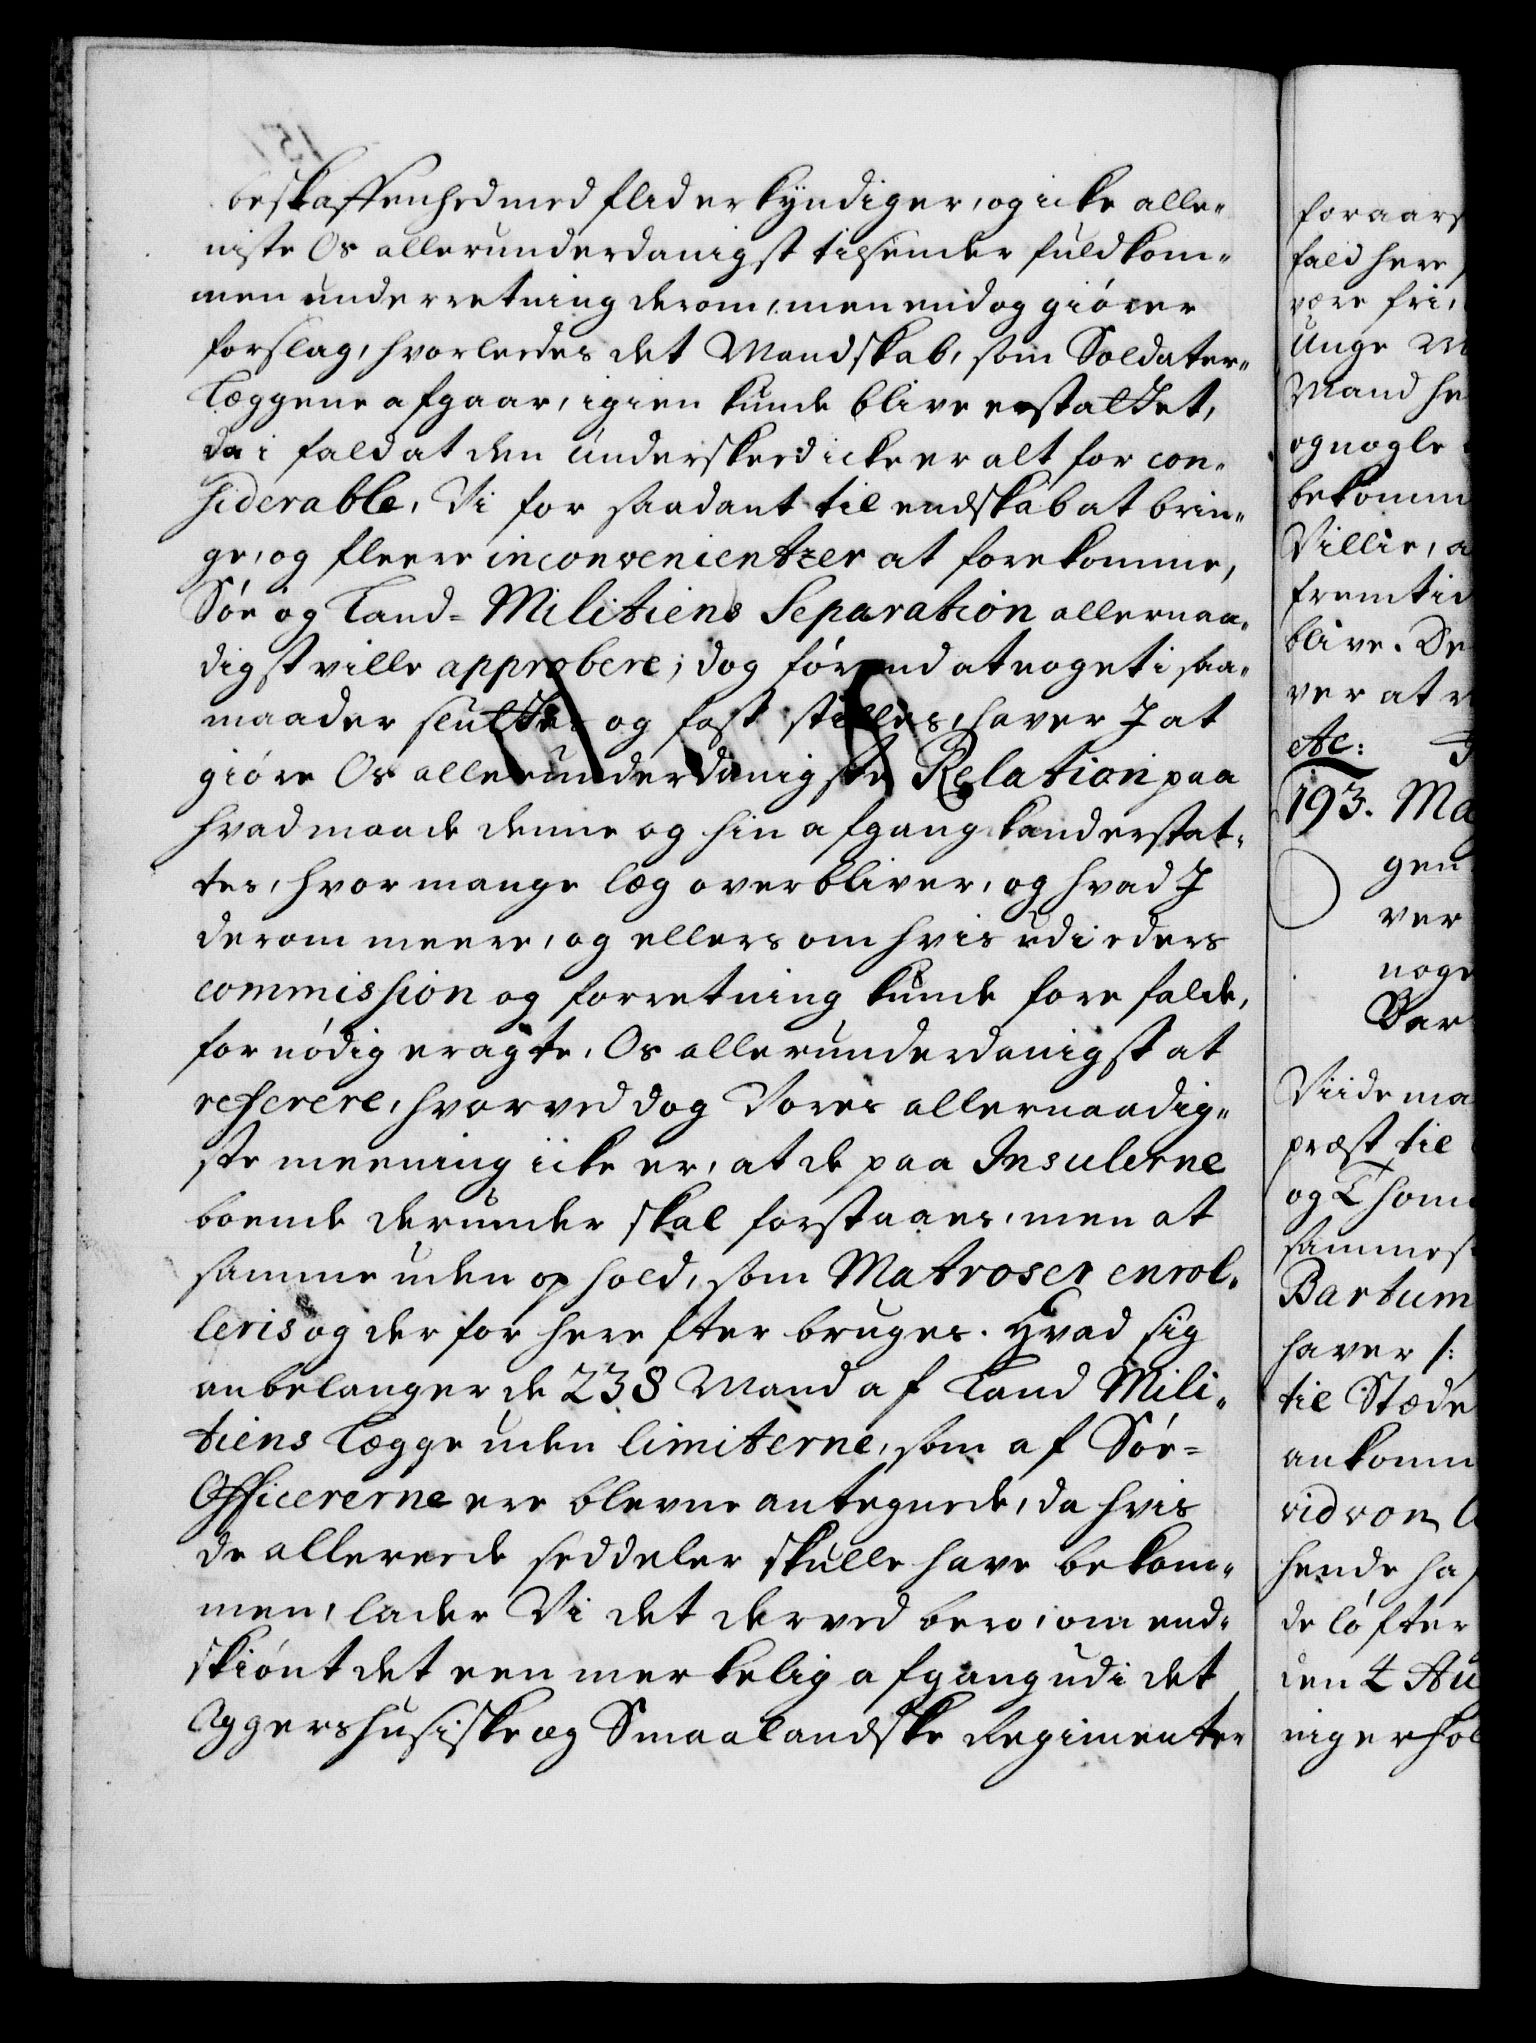 beskaffenhed med flid erkyndiger, og icke alle„
niste Os allerunderdanigst tilsender fuldkom„
men underretning derom, men endog giörer
forslag, hvorledes det Mandskab, som Soldater„
Læggene afgaar, igien kunde blive erstattet,
da i fald at den underskeed icke er alt for con„
siderable, Vi for saadant til endskab at brin„
ge, og fleere inconvenientzer at forekomme,
Söe og Land-Militiens Separation allernaa„
digst ville approbere; dog förend at noget i saa„
maader sluttes og fast stilles, haver I at
giöre Os allerunderdanigste Relation paa
hvad maade denne og hin afgang kand erstat„
tes, hvor mange læg overbliver, og hvad I
derom meene, og ellers om hvis udi eders
commission og forretning kunde forefalde,
for nödig eragte, Os allerunderdanigst at
referere, hvorved dog Vores allernaadig„
ste meening iicke er, at de paa Insulerne
boende derunder skal forstaaes, men at
samme uden ophold, som Matroser enrol„
leris og der for herefter bruges. Hvad sig
anbelanger de 238 Mand af Land Mili„
tiens Lægge uden limiterne, som af Söe-
Officererne ere blevne antegnede, da hvis
de allereede seddeler skulle have bekom„
men, lader Vi det derved bero, om end„
skiönt det een merkelig afgang udi det
Aggershusiske og Smaalandske Regimenter
foraars
fald here
være fri,
Unge
Mand he
og nogle
bekomm
Villie, a
fremtid
blive. De
ver at
etc:
193. Ma
gen
ver
noge
Bar
Viide ma
præst til
og Thom
sammes
Bartum
haver /:
til Stæde
ankomm
vid von
hende ha
de löfter
den 4 Au
niger hol